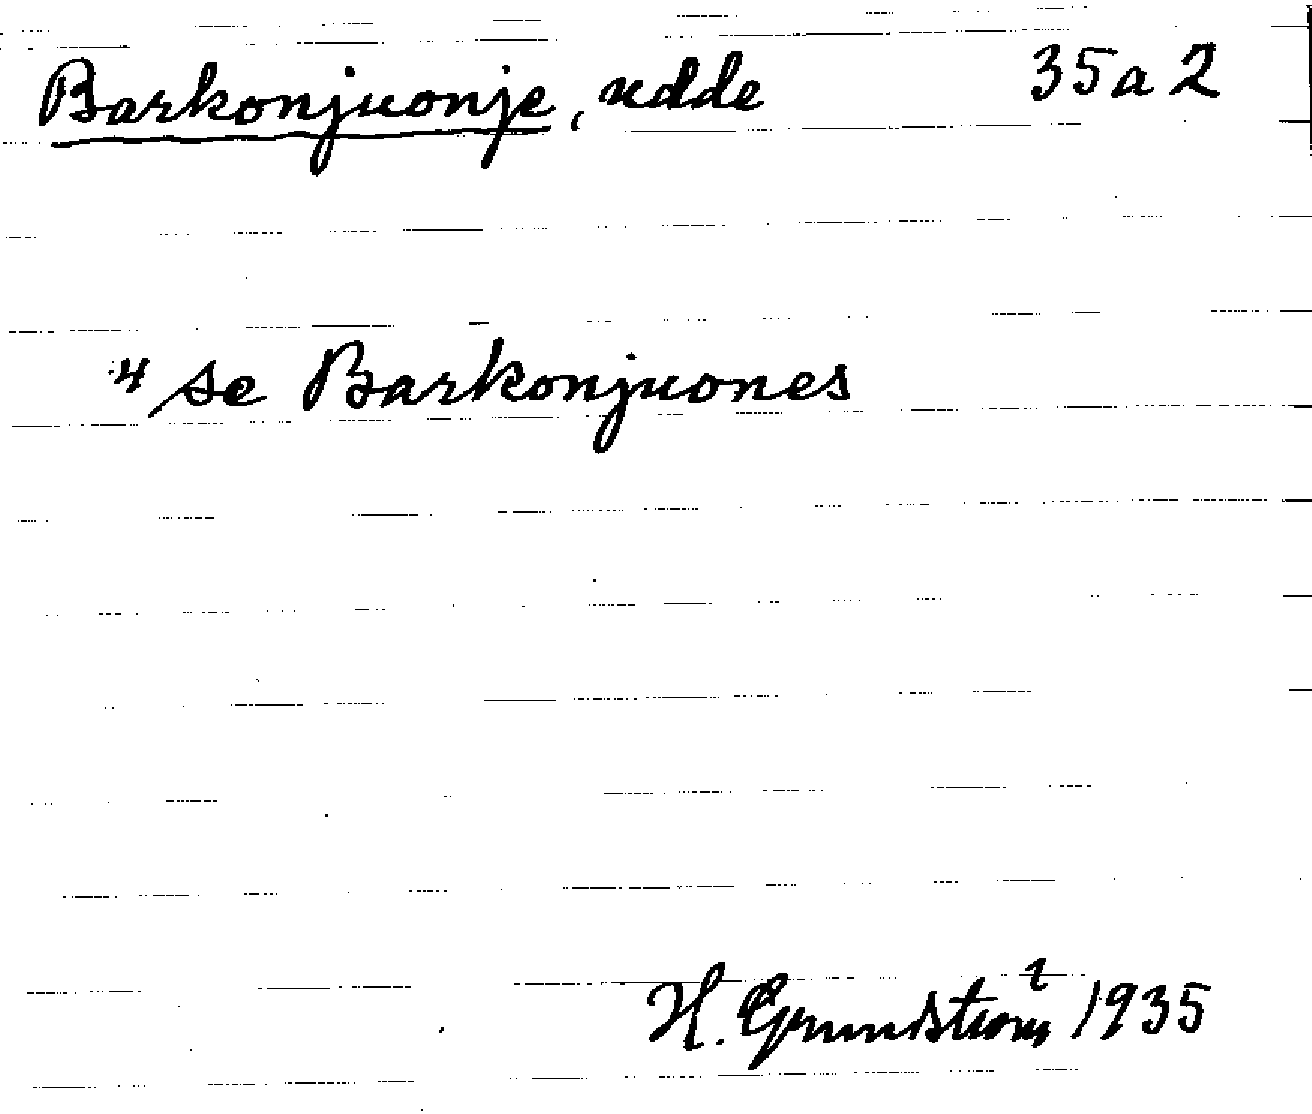 Barkonjuonje, udde 35a2
4/ se Barkonjuones
H. Grundström 1935